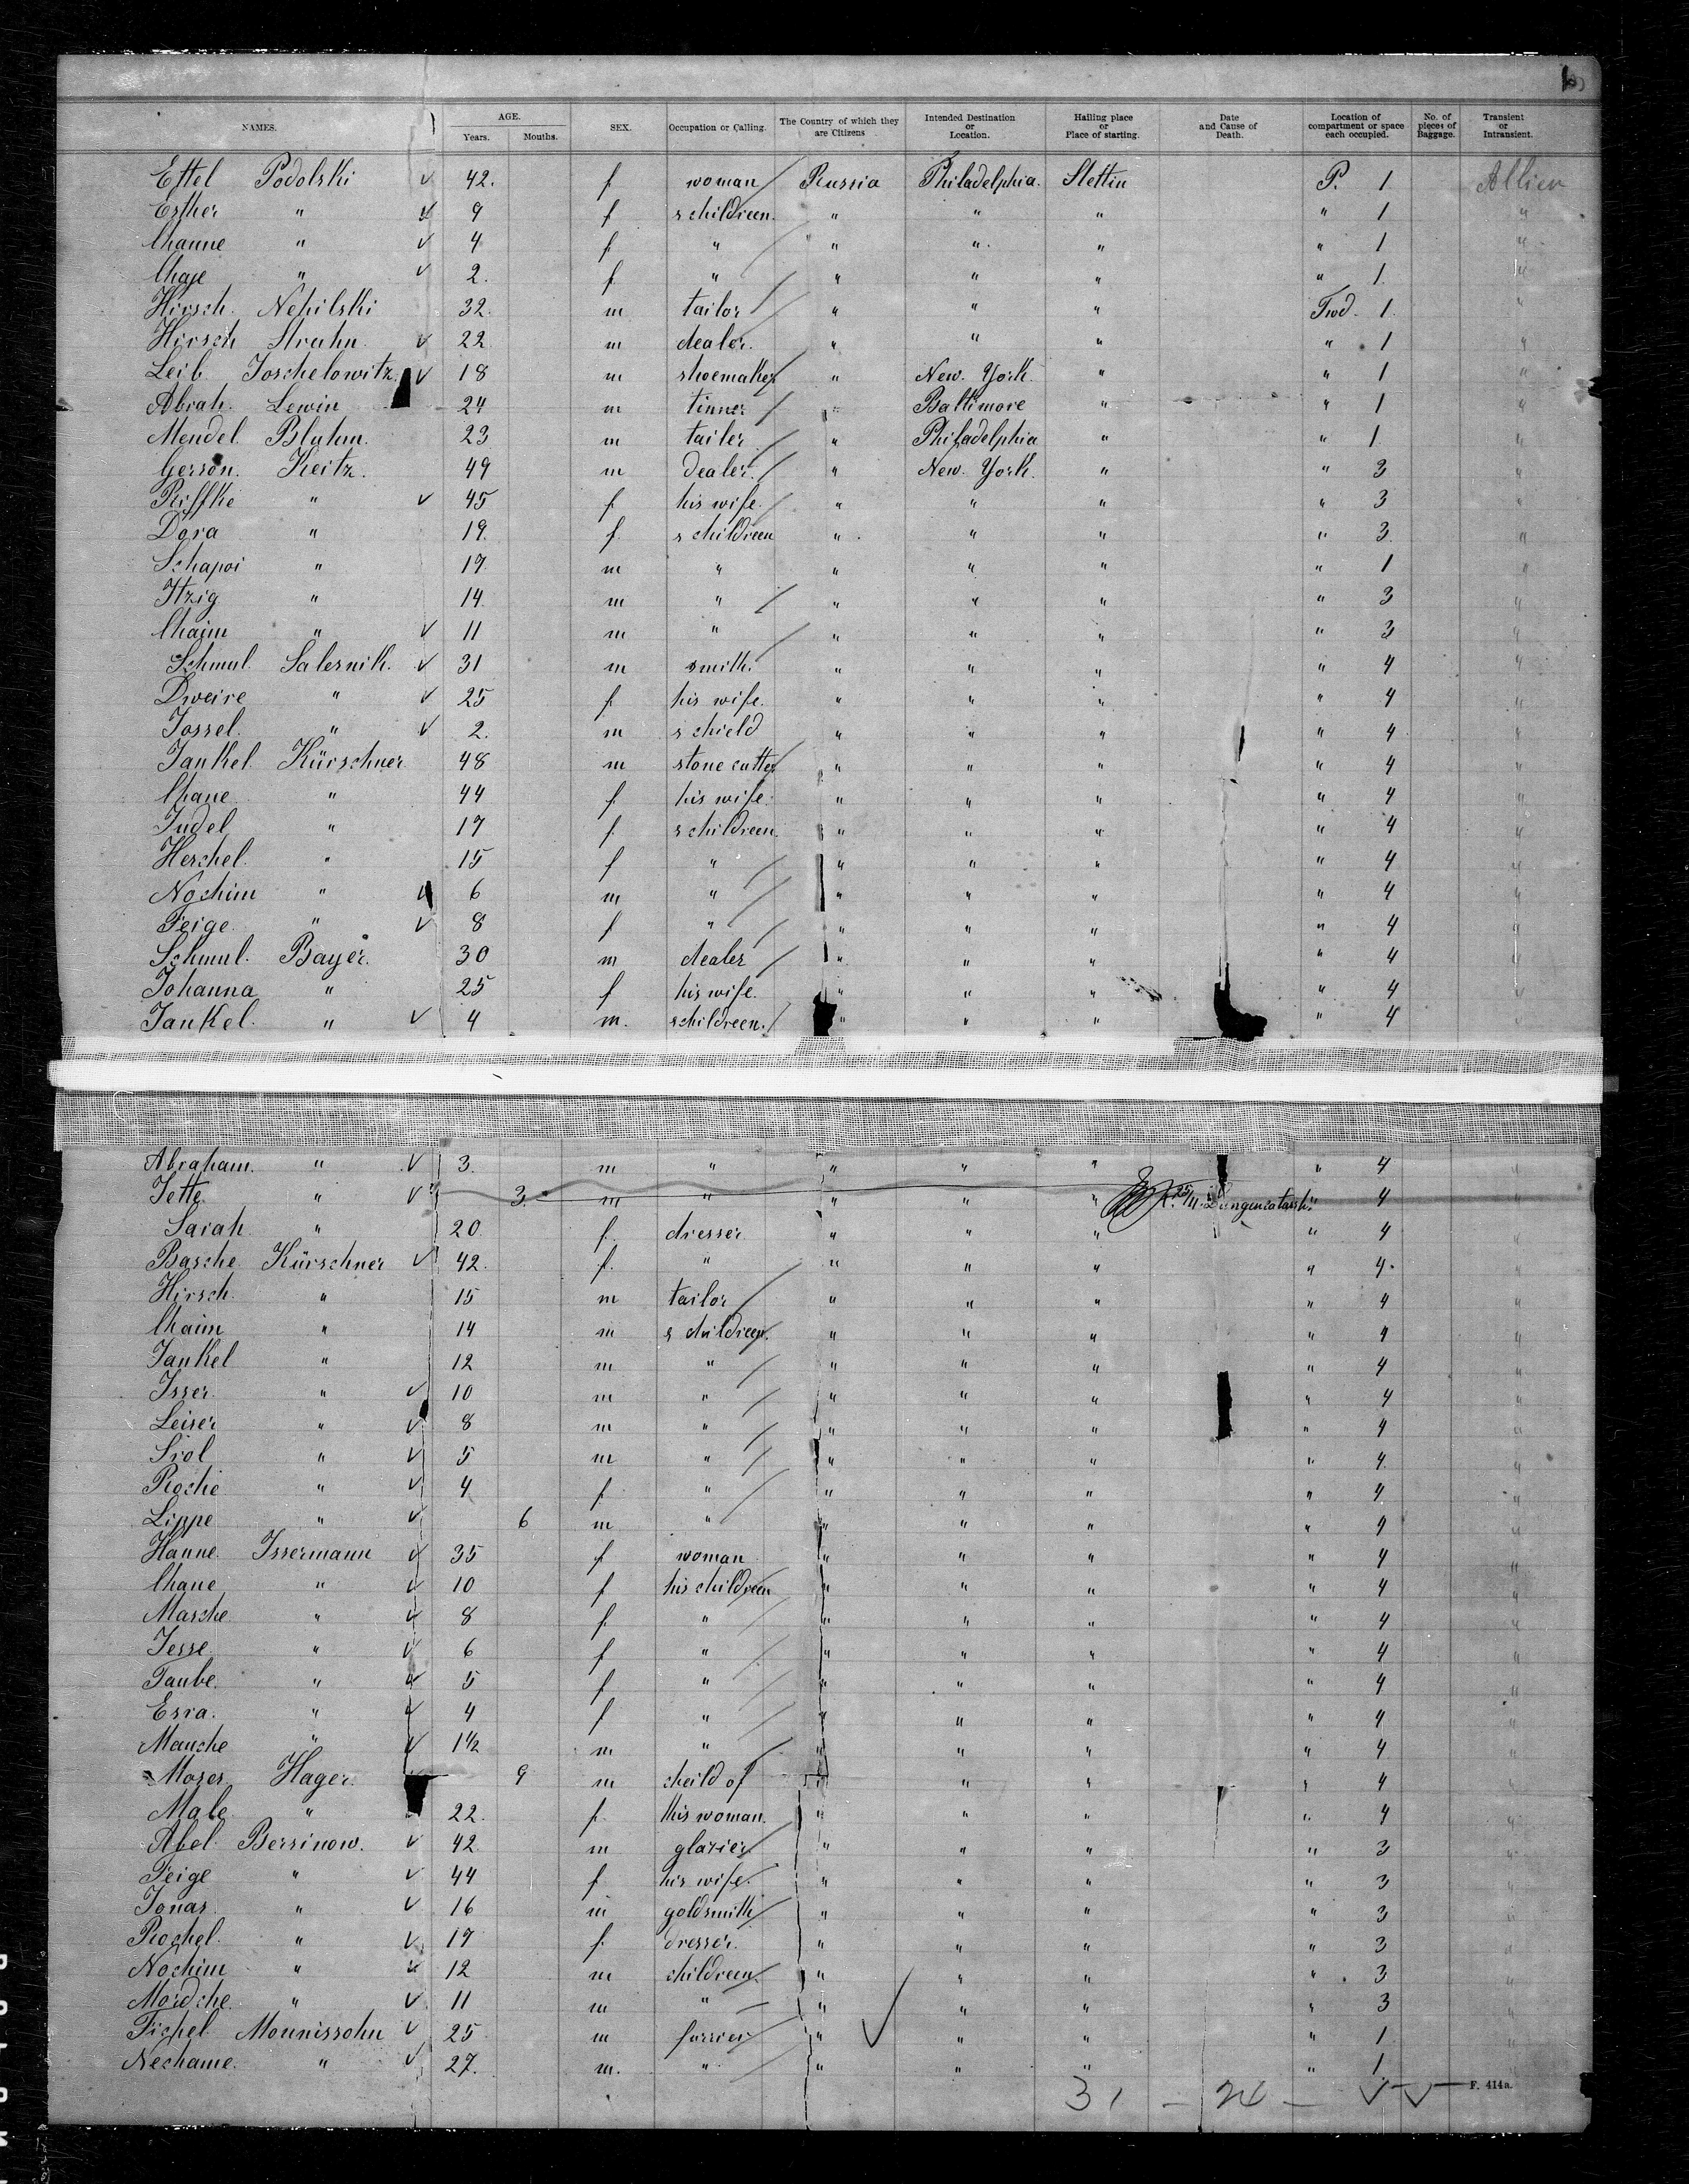 NAMES. AGE. Years. Months. SEX. Occupation or Calling. The Country of which they are Citizens Intended Destination or Location. Hailing place or Place of starting. Date and Cause of Death. Location of compartment or space each occupied. No. of pieces of Baggage. Transient or Intransient.
Ettel Podolski √ 42. f. woman Russia Philadelphia. Stettin P. 1
Esther " √ 9 f s childreen. " " " " 1 "
Channe " √ 4 f. " " " " " 1 "
Chaje " √ 2. f. " " " " " 1. "
Hirsch. Nehilski 32. m tailor " " " Twd. 1. "
Hirsch Struhn. √ 22 m dealer. " " " " 1 "
Leib Joschelowitz. √ 18 m shoemaker " New. York. " " 1 "
Abrah. Lewin 24 m tinner " Baltimore " " 1 "
Mendel. Bluhm. 23 m tailer " Philadelphia " " 1. "
Gerson. Keitz. 49 m dealer. " New. York. " " 3 "
Riffke " √ 45 f his wife. " " " " 3 "
Dora " 19. f. s childreen " " " " 3. "
Schapoi " 17. m " " " " " 1 "
Itzig " 14. m " " " " " 3 "
Chaim " √ 11 m " " " " " 3 "
Schmul. Salesnik. √ 31 m smith. " " " " 4 "
Dweire " √ 25 f. his wife. " " " " 4 "
Jossel. " √ 2. m s chield " " " " 4 "
Jankel. Kürschner 48 m stone cutter " " " " 4 "
Chane " 44 f. his wife. " " " " 4 "
Judel " 17 f. s childreen. " " " " 4 "
Herschel. " 15 f " " " " " 4 "
Nochim " √ 6 m " " " " " 4 "
Feige. " √ 8 f " " " " " 4 "
Schmul. Bayer. 30 m dealer " " " " 4 "
Johanna " 25 f his wife. " " " " 4
Jankel. " √ 4 m. s childreen. " " " " 4
Abraham. " √ 3. m " " " " " 4 "
Jette. " √ 3. m " " " " 25/11. Lungencatarrh. " 4 "
Sarah. " 20. f. dresser " " " " 4 "
Basche. Kürschner √ 42. f. " " " " " 4. "
Hirsch. " 15 m tailor " " " " 4 "
Chaim " 14 m s childreen. " " " " 4 "
Jankel " 12 m " " " " " 4 "
Isser. " √ 10 m " " " " " 4 "
Leiser " √ 8 m " " " " " 4 "
Srol " √ 5 m " " " " " 4. "
Roche " √ 4 f. " " " " " 4 "
Lippe " √ 6 m " " " " " 4 "
Hanne. Issermann √ 35 f woman " " " " 4 "
Chane " √ 10 f his childreen " " " " 4 "
Masche. " √ 8 f. " " " " " 4 "
Jesse. " √ 6 f " " " " " 4 "
Taube. " √ 5 f " " " " " 4 "
Esra. " √ 4 f " " " " " 4 "
Mausche " √ 1 1/2 m " " " " " 4 "
Moses Hager. 9 m cheild of " " " " 4 "
Male " 22. f. this woman. " " " " 4 "
Abel Bersinow. √ 42. m glazier. " " " " 3 "
Feige " √ 44 f his wife. " " " " 3 "
Jonas. " √ 16 m goldsmith " " " " 3 "
Rochel. " √ 17 f. dresser. " " " " 3 "
Nochim " √ 12 m childreen. " " " " 3 "
Mordche. " √ 11 m " " " " " 3 "
Fischel Monnissohn √ 25 m furrier " √ " " " 1. "
Nechame. " √ 27. m. " " " " " 1. "
31 – 24 – √ √ F. 414a.